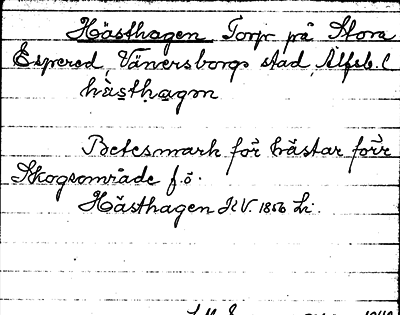 Hästhagen Torp på Stora
Espered, Vänersborgs stad, Älfsb. l
hästhagen
Betesmark för hästar förr
Skogsområde f.ö.
Hästhagen KV. 1856 Lr.